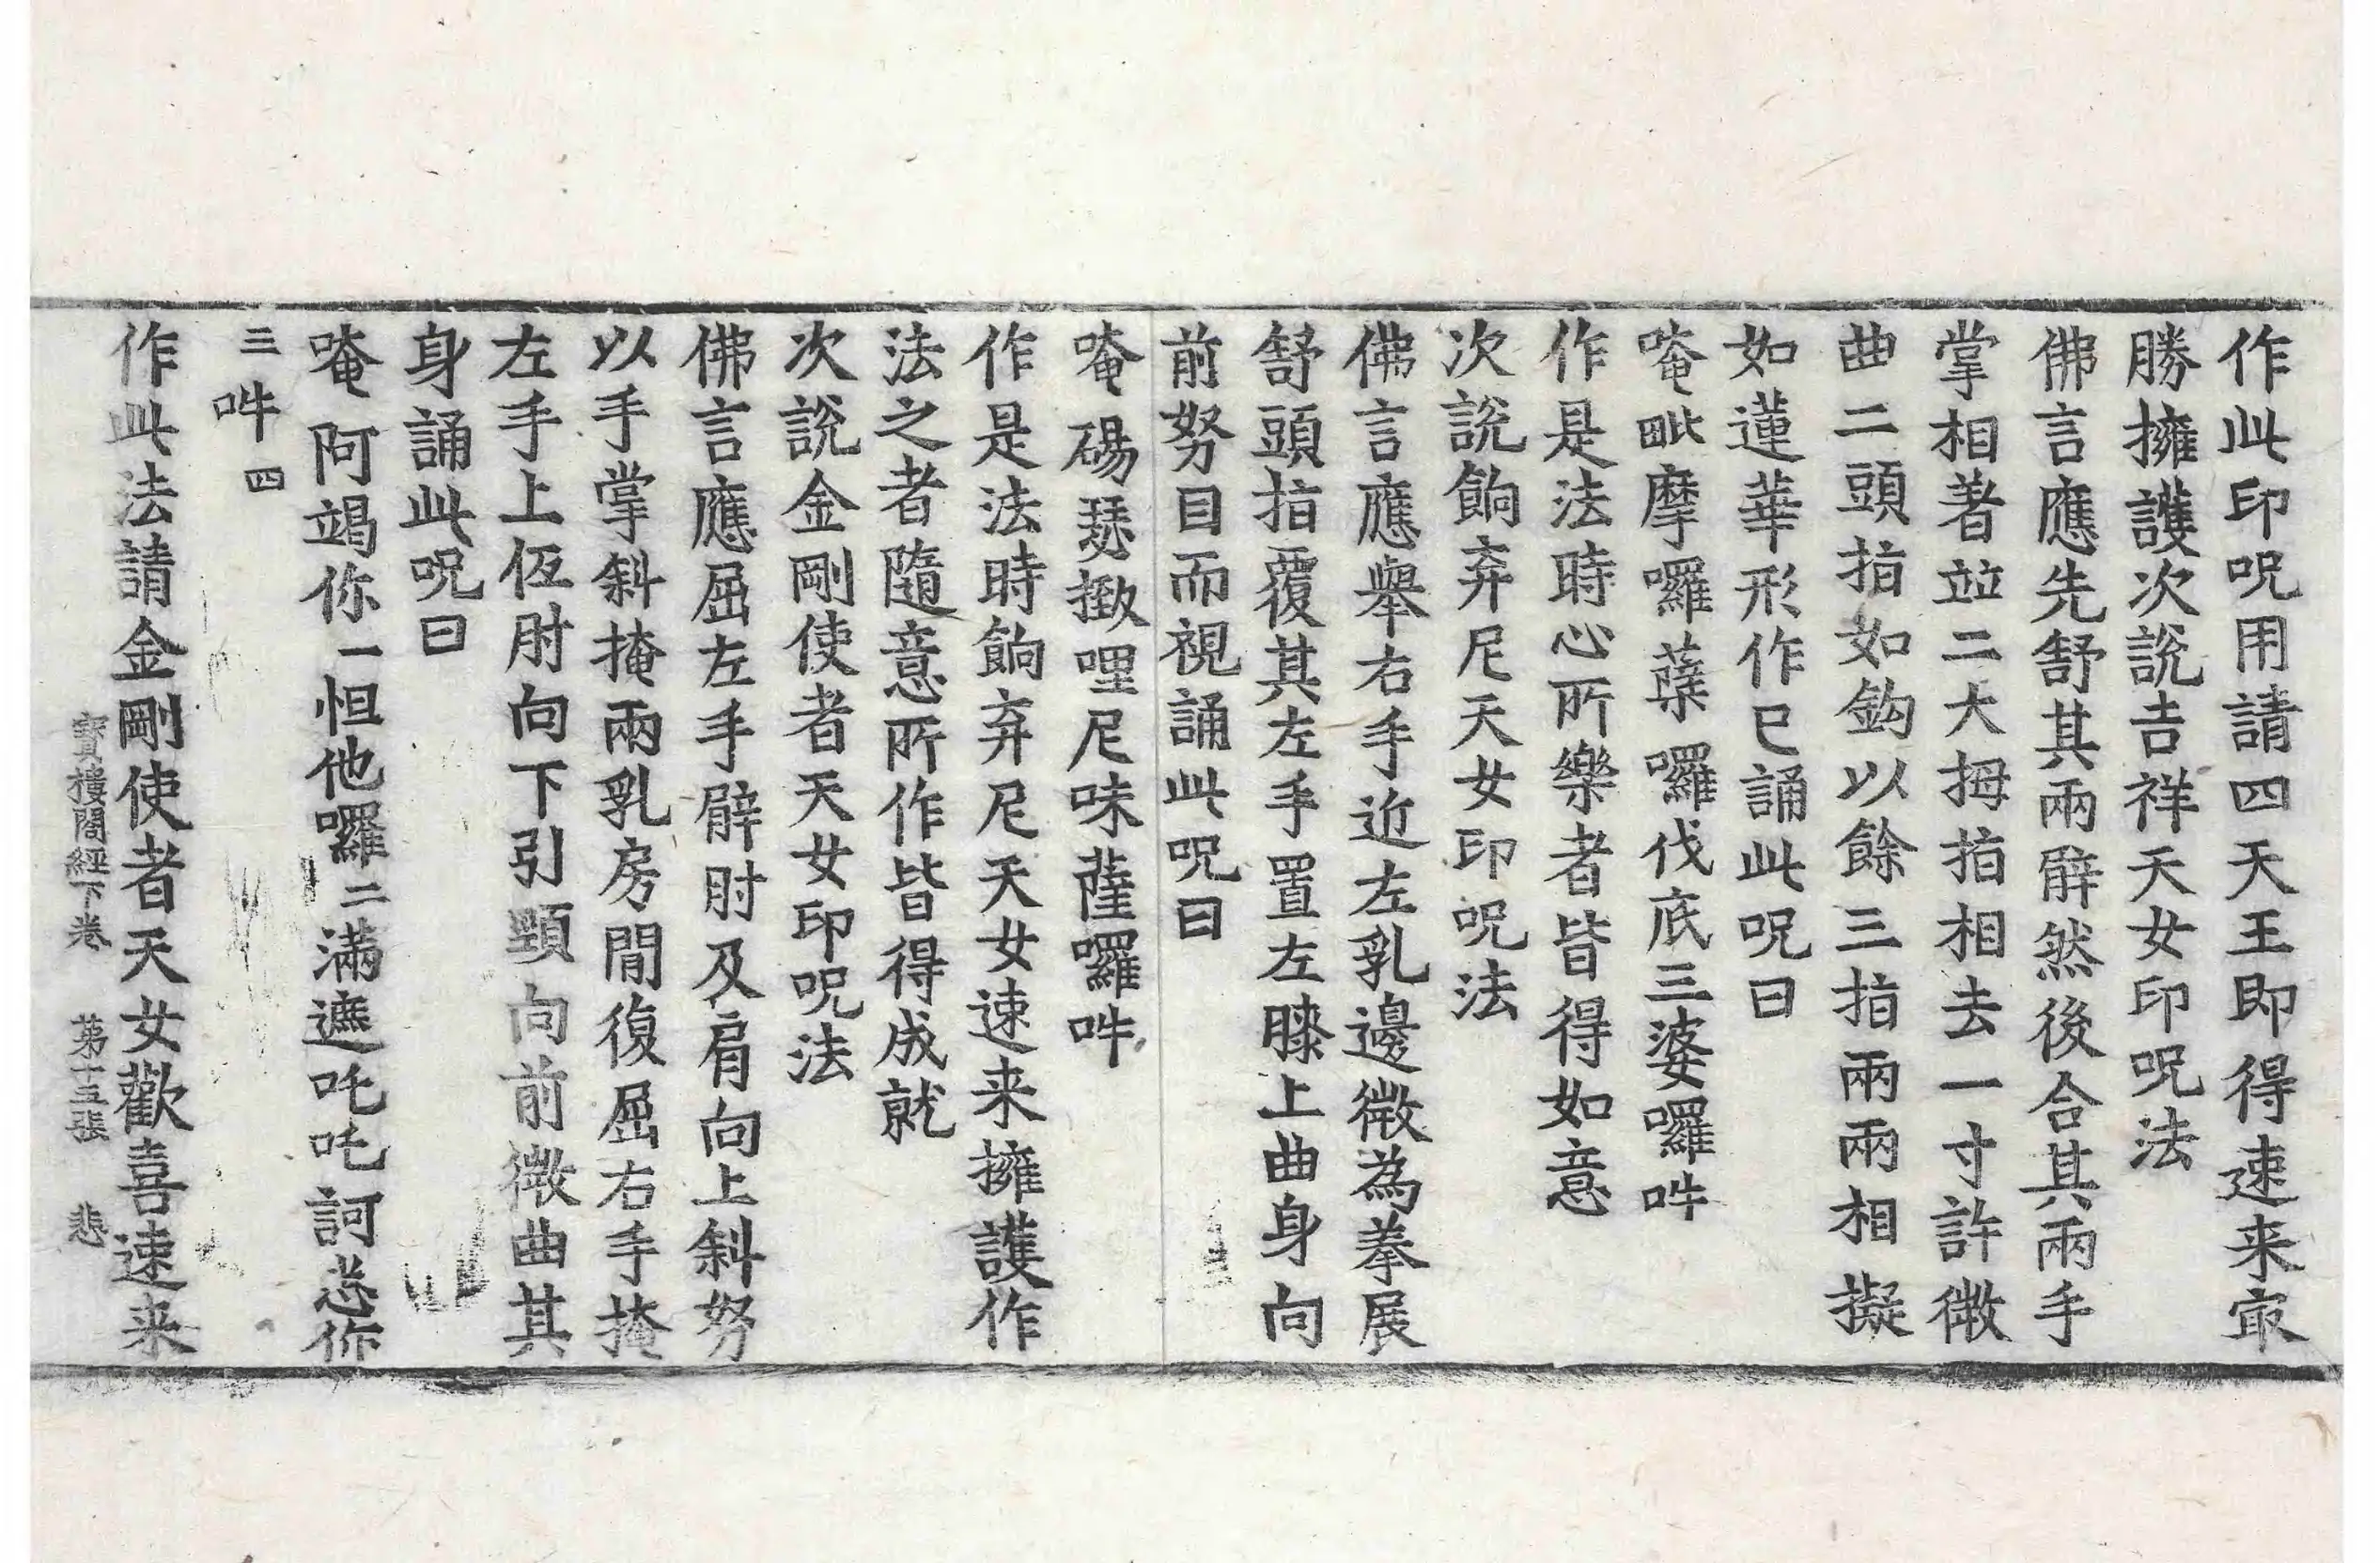 作此印呪用請四天王即得速来㝡
勝擁護次説吉祥天女印呪法
佛言應先舒其兩臂然後合其兩手
掌相著並二大拇指相去一寸許微
曲二頭指如鉤以餘三指兩兩相擬
如蓮華形作已誦此呪曰
唵毗摩囉蘗囉伐底三婆囉吽
作是法時心所樂者皆得如意
次説餉弃尼天女印呪法
佛言應舉右手近左乳邊微為拳展
舒頭指覆其左手置左膝上曲身向
前努目而視誦此呪曰
唵碭瑟撖哩尼味薩囉吽
作是法時餉弃尼天女速来擁護作
法之者隨意所作皆得成就
次説金剛使者天女印呪法
佛言應屈左手臂肘及肩向上斜努
以手掌斜掩兩乳房閒復屈右手掩
左手上仾肘向下引頸向前微曲其
身誦此呪曰
唵阿竭你一怛他囉二滿遮吒吒訶惹你
三吽四
作此法請金剛使者天女歡喜速来
寶樓閣經下卷 第十五張 悲